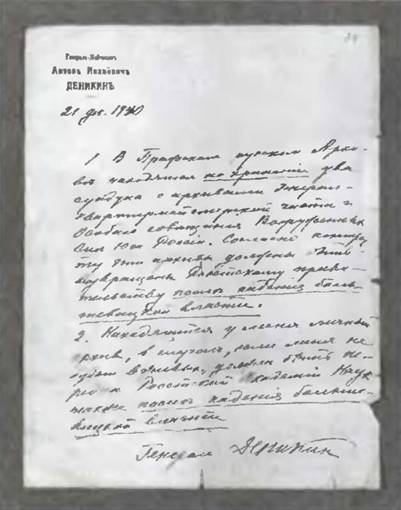 Генерал-Лейтенант
Антонъ Ивановичъ
ДЕНИКИНЪ
1. В Пражском русском Архи-
ве находятся на хранении два
сундука с архивами Генерал-
квартирмейстерской части и
Особого совещания Вооруженных
Сил Юга России. Согласно
эти архивы должны быть
возвращены Российскому прави-
тельству после падения боль-
шевицкой власти.
2. Находящийся у меня личный
архив, в случае, если меня не
будет в живых, должен быть пе-
Российской Академии Наук
также после падения больше-
вицкой власти
Генерал Деникин